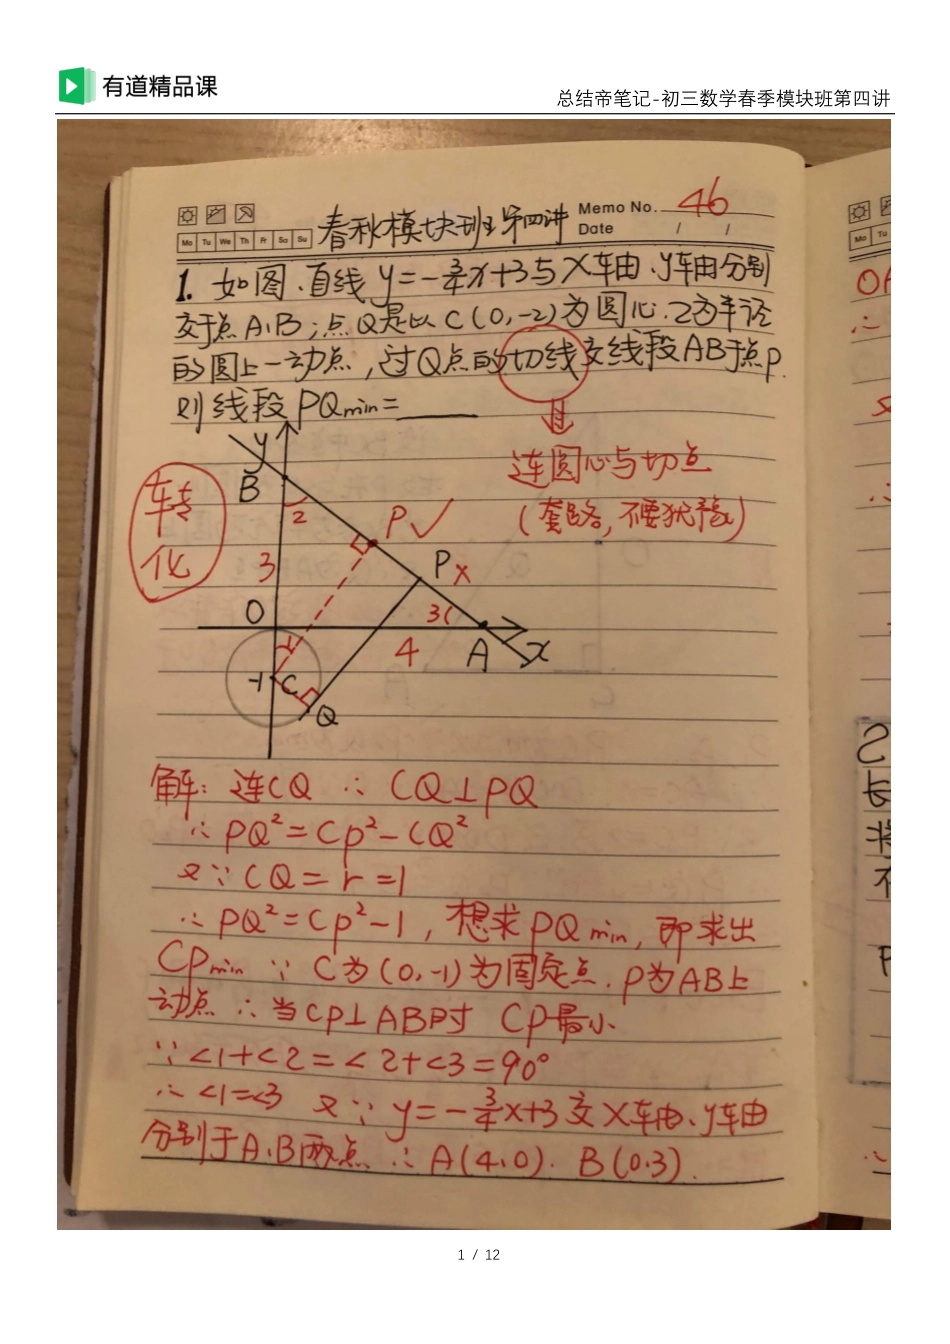 有道精品课
总结帝笔记-初三数学春季模块班第四讲
春秋模块班第四讲
Memo No. 46
Mo Tu We Th Fr Sa Su
Date / /
1. 如图、直线 y=-3/4x+3与X车由、y车由分别
交于点A、B;点Q是以C(0,-2)为圆心.2为半径
的圆上一动点,过Q点的切线交线段AB于点P.
则线段PQmin=____
连圆心与切点
(套路,不要犹豫)
转
化
y
B
2
P✓
3
P x
O
31
4
A
x
-1
C
Q
解: 连CQ ∴ CQ⊥PQ
∴ PQ²=CP²-CQ²
又∵ CQ=r=1
∴ PQ²=CP²-1, 想求PQ min, 即求出
CPmin ∵ C为(0,-1)为固定点. P为AB上
动点 ∴ 当CP⊥AB时 CP最小
∵ <1+<2=<2+<3=90°
∴ <1=<3 又∵ y=-3/4x+3交X车由、y车由
分别于A、B两点 ∴ A(4、0). B(0.3).
1 / 12